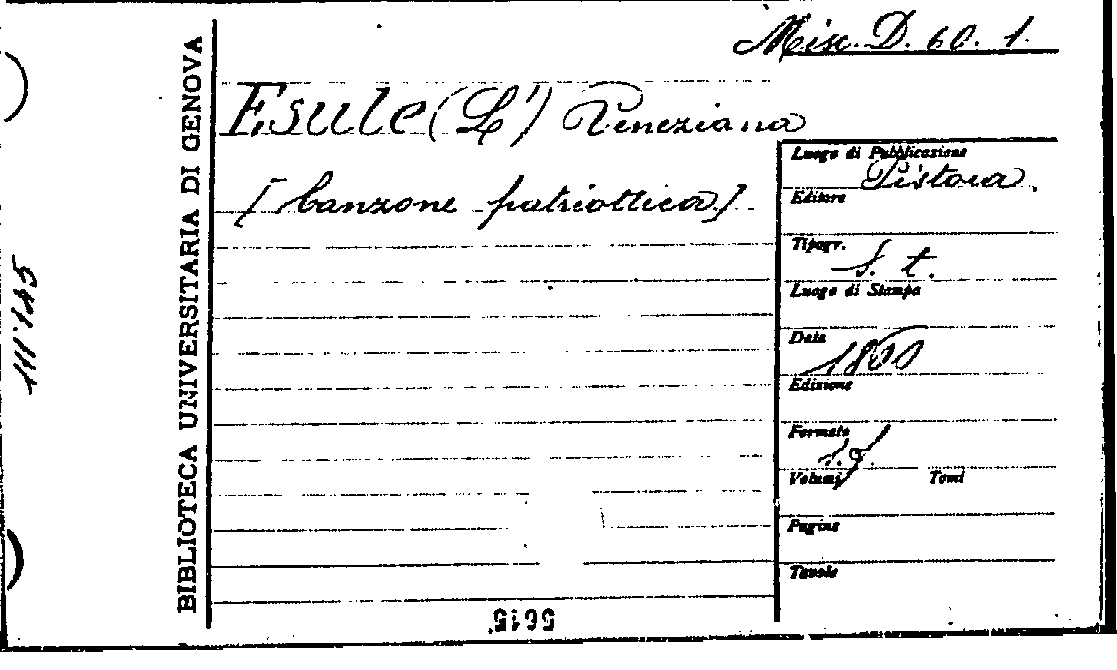 Misc. D. 60. 1.
Esule (L') Veneziana
[Canzone patriottica]
BIBLIOTECA UNIVERSITARIA DI GENOVA
Luogo di Pubblicazione
Pistoia.
Editore
Tipogr.
S. t.
Luogo di Stampa
Data
1860
Edizione
Formato
Volumi Tomi
Pagine
Tavole
5615